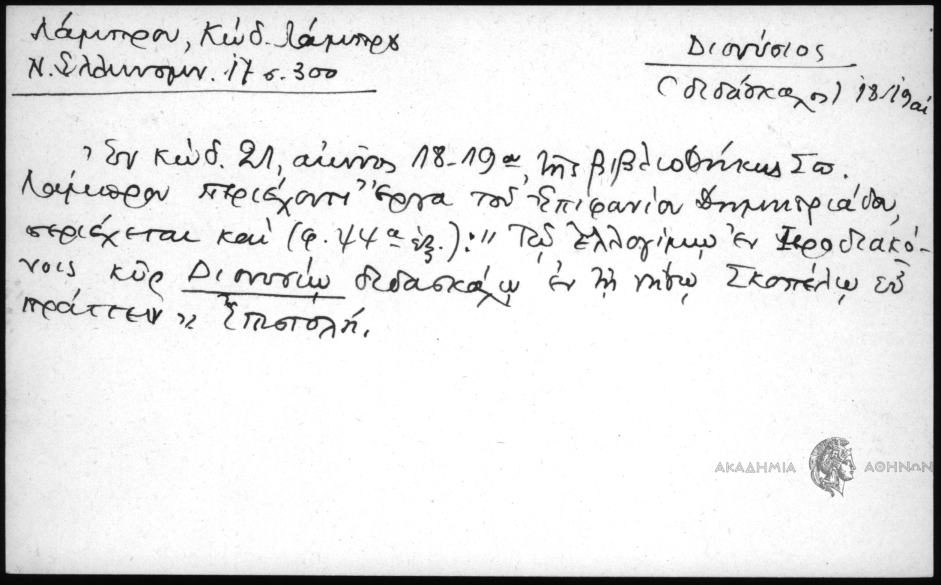 Λάμπρου, Κώδ. Λάμπρου
Ν. Ἑλληνομν. 17 σ. 300
Διονύσιος
(διδάσκαλος) 18-19 αἰ
Ἐν κώδ. 21, αἰῶνος 18-19 α, τῆς βιβλιοθήκης Σπ.
Λάμπρου περιέχοντι ἔργα τοῦ Ἐπιφανίου Δημητριάδου,
περιέχεται καὶ (φ. 44 α ἑξ.): " Τῷ ἐλλογίμῳ ἐν Ἱεροδιακό-
νοις κὺρ Διονυσίῳ διδασκάλῳ ἐν τῇ νήσῳ Σκοπέλῳ εὖ
πράττειν " Ἐπιστολή.
ΑΚΑΔΗΜΙΑ ΑΘΗΝΩΝ